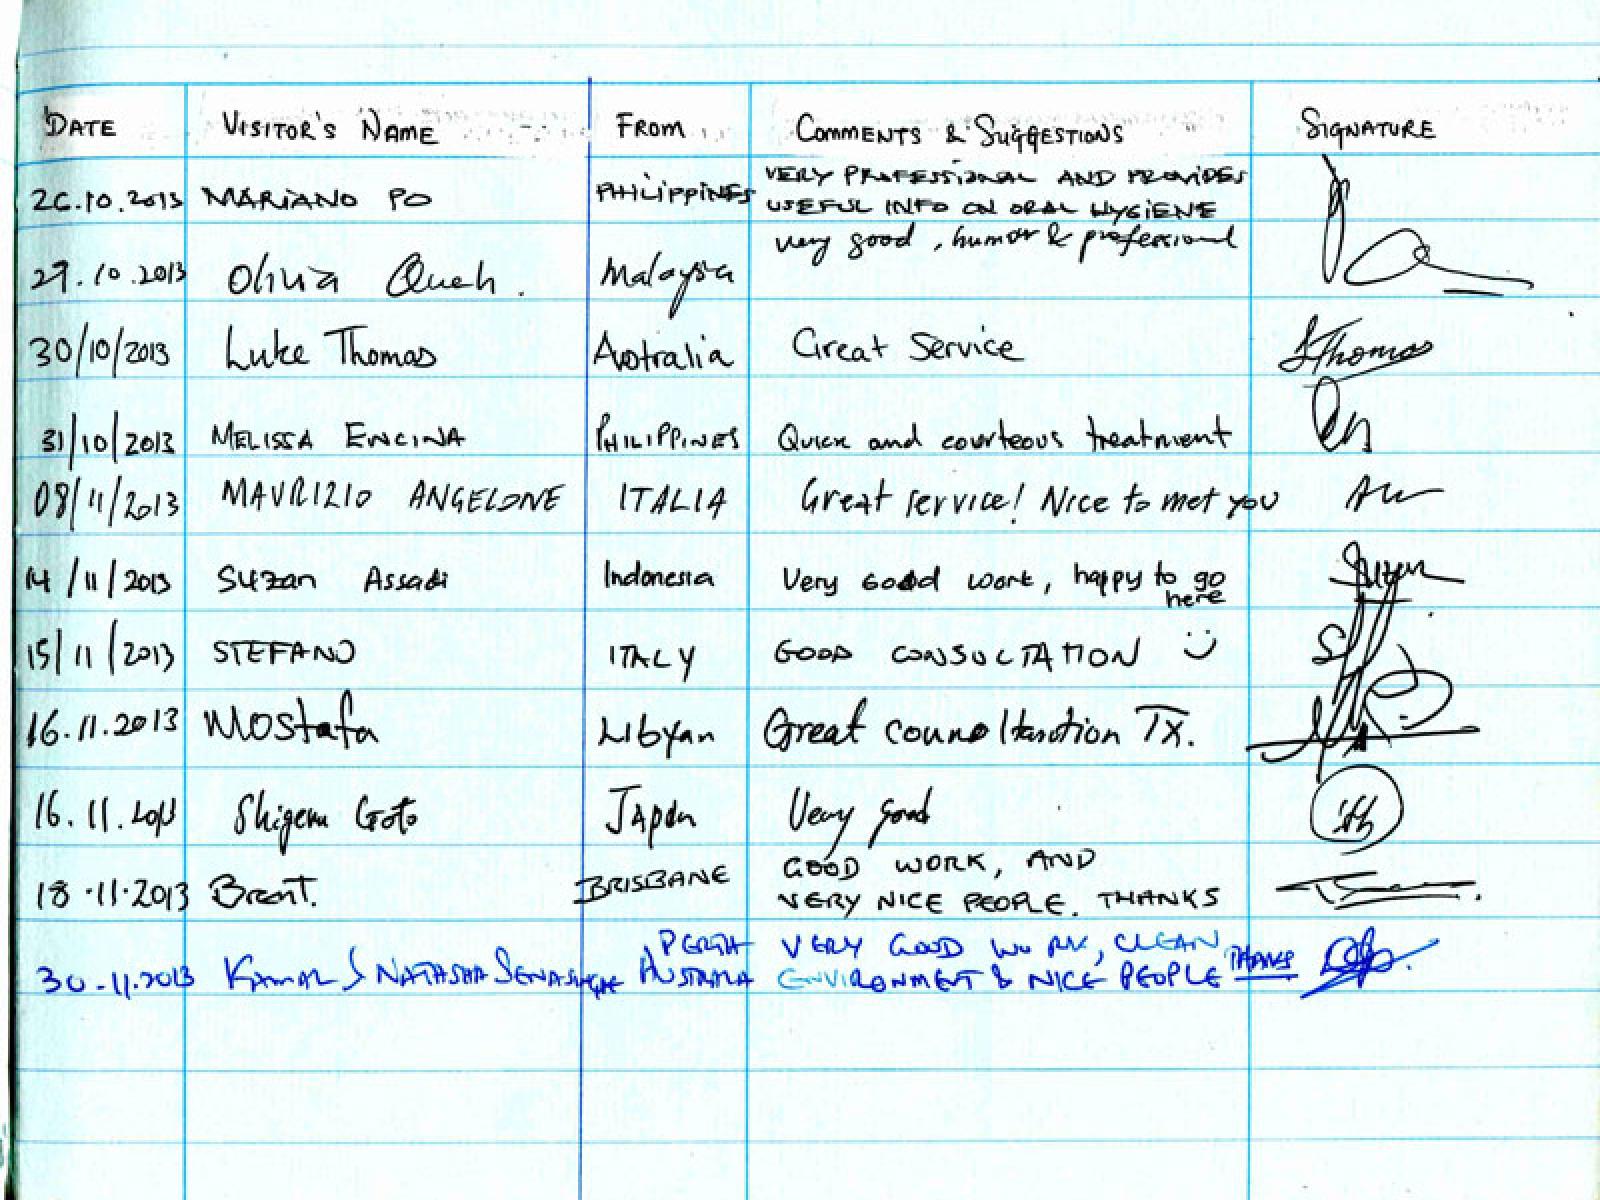 DATE VISITOR'S NAME FROM COMMENTS & SUGGESTIONS SIGNATURE
26.10.2013 MARIANO PO PHILIPPINES VERY PROFESSIONAL AND PROVIDES
USEFUL INFO ON ORAL HYGIENE
very good, humor & professional
29.10.2013 Olivia Queh. Malaysia
30/10/2013 Luke Thomas Australia Great Service Thomas
31/10/2013 MELISSA ENCINA PHILIPPINES Quick and courteous treatment
08/11/2013 MAURIZIO ANGELONE ITALIA Great service! Nice to met you
14/11/2013 Suzan Assadi Indonesia Very Good work, happy to go
here
15/11/2013 STEFANO ITALY GOOD CONSULTATION :)
16.11.2013 Mostafa Libyan Great TX.
16.11.2013 Shigeru Goto Japan Very good
GOOD WORK, AND
18.11.2013 Brent. BRISBANE VERY NICE PEOPLE. THANKS
PERTH VERY GOOD WORK, CLEAN
30.11.2013 Kamal & NATASHA AUSTRALIA ENVIRONMENT & NICE PEOPLE THANKS